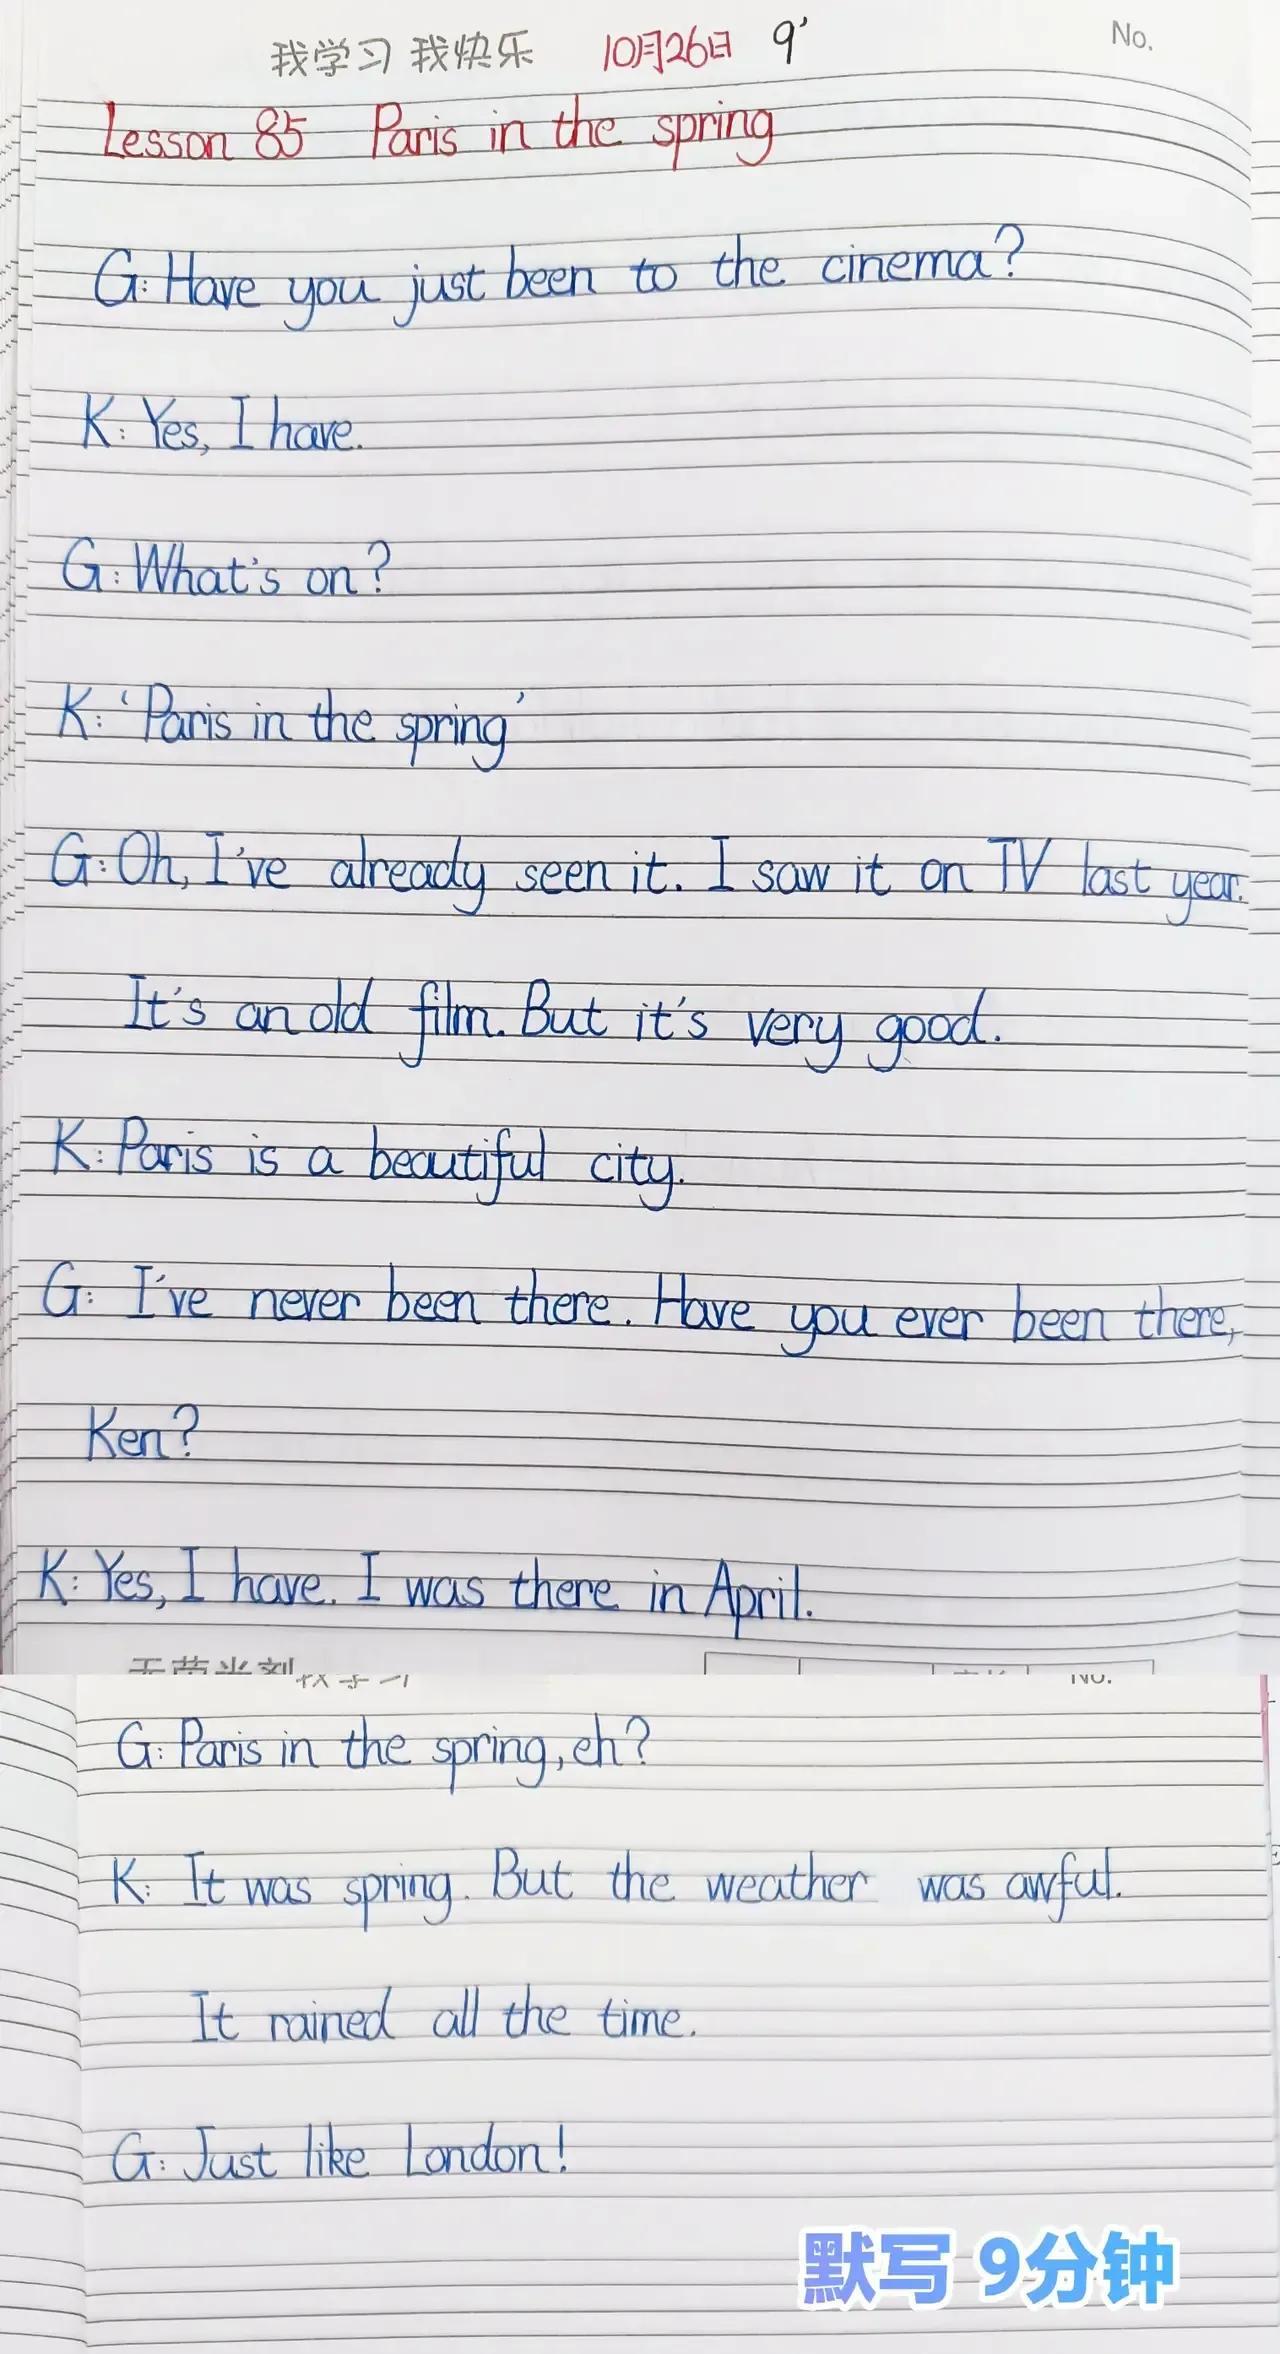 我学习 我快乐 10月26日 9' No.
Lesson 85 Paris in the spring
G: Have you just been to the cinema?
K: Yes, I have.
G: What's on?
K: 'Paris in the spring'
G: Oh, I've already seen it. I saw it on TV last year.
It's an old film. But it's very good.
K: Paris is a beautiful city.
G: I've never been there. Have you ever been there,
Ken?
K: Yes, I have. I was there in April.
No.
G: Paris in the spring, eh?
K: It was spring. But the weather was awful.
It rained all the time.
G: Just like London!
默写 9分钟